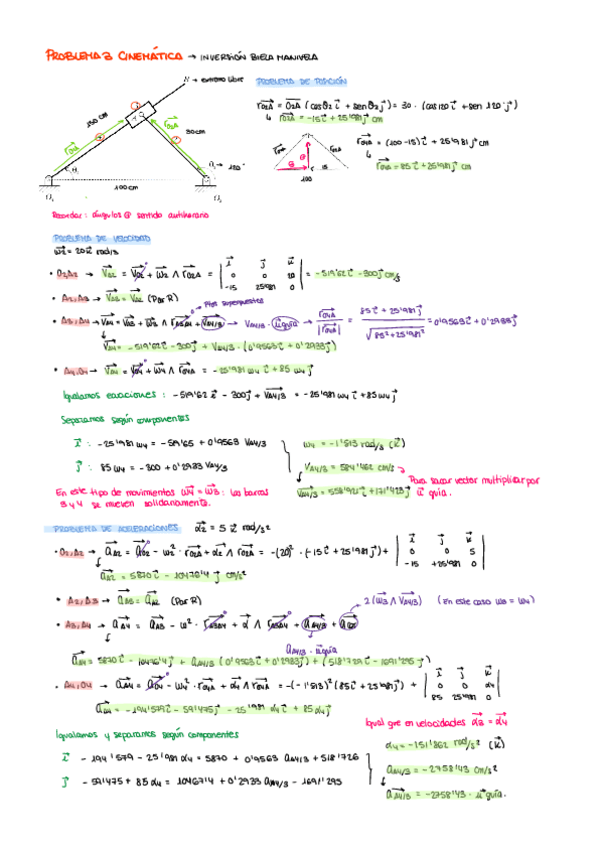 PROBLEMA 3 CINEMÁTICA → INVERSIÓN BIELA MANIVELA
N → EXTREMO LIBRE
PROBLEMA DE POSICIÓN
150 cm
30cm
100 cm
r02A = O2A (cosθ2 i + senθ2 j) = 30 · (cos120 i + sen 120 j)
r02A = -15 i + 25'981 j cm
r04A = (100-15) i + 25'981 j cm
r04A = 85 i + 25'981 j cm
100
15
Recordar: ángulos ⊕ sentido antihorario
PROBLEMA DE VELOCIDAD
ω2 = 20 k rad/s
• O2,A2 → VA2 = VO2 + ω2 ∧ r02A = | i j k ; 0 0 20 ; -15 25'981 0 | = -519'62 i - 300 j cm/s
• A2,A3 → VA3 = VA2 (Par R)
Ptos superpuestos
• A3,A4 → VA4 = VA3 + ω3 ∧ rA3A4 + VA4/3 → VA4/3 · u guía → r04A / |r04A| = 85 i + 25'981 j / √85²+25'981² = 0'9563 i + 0'2923 j
VA4 = -519'62 i - 300 j + VA4/3 · (0'9563 i + 0'2923 j)
• A4,O4 → VA4 = VO4 + ω4 ∧ r04A = -25'981 ω4 i + 85 ω4 j
Igualamos ecuaciones: -519'62 i - 300 j + VA4/3 = -25'981 ω4 i + 85 ω4 j
Separamos según componentes
i : -25'981 ω4 = -519'65 + 0'9563 VA4/3
j : 85 ω4 = -300 + 0'2923 VA4/3
ω4 = -1'513 rad/s (k)
VA4/3 = 584'462 cm/s
VA4/3 = 558'921 i + 171'423 j
Para sacar vector multiplicar por u guía.
En este tipo de movimientos ω4 = ω3: las barras
3 y 4 se mueven solidariamente.
PROBLEMA DE ACELERACIONES α2 = 5 k rad/s²
• O2,A2 → aA2 = aO2 - ω2² · r02A + α2 ∧ r02A = -(20)² · (-15 i + 25'981 j) + | i j k ; 0 0 5 ; -15 +25'981 0 |
aA2 = 5870 i - 10467'4 j cm/s²
• A2,A3 → aA3 = aA2 (Par R)
2 (ω3 ∧ VA4/3) (En este caso ω3 = ω4)
• A3,A4 → aA4 = aA3 - ω² · rA3A4 + α ∧ rA3A4 + aA4/3 + acor
aA4/3 · u guía
aA4 = 5870 i - 10467'4 j + aA4/3 (0'9563 i + 0'2923 j) + (518'729 i - 1691'295 j)
• A4,O4 → aA4 = aO4 - ω4² · r04A + α4 ∧ r04A = -(-1'513)² (85 i + 25'981 j) + | i j k ; 0 0 α4 ; 85 25'981 0 |
aA4 = -194'579 i - 59'475 j - 25'981 α4 i + 85 α4 j
Igual que en velocidades α3 = α4
Igualamos y separamos según componentes
i -194'579 - 25'981 α4 = 5870 + 0'9563 aA4/3 + 518'726
j -59'475 + 85 α4 = 10467'4 + 0'2923 aA4/3 - 1691'295
α4 = -151'862 rad/s² (k)
aA4/3 = -2758'43 cm/s²
aA4/3 = -2758'43 · u guía.